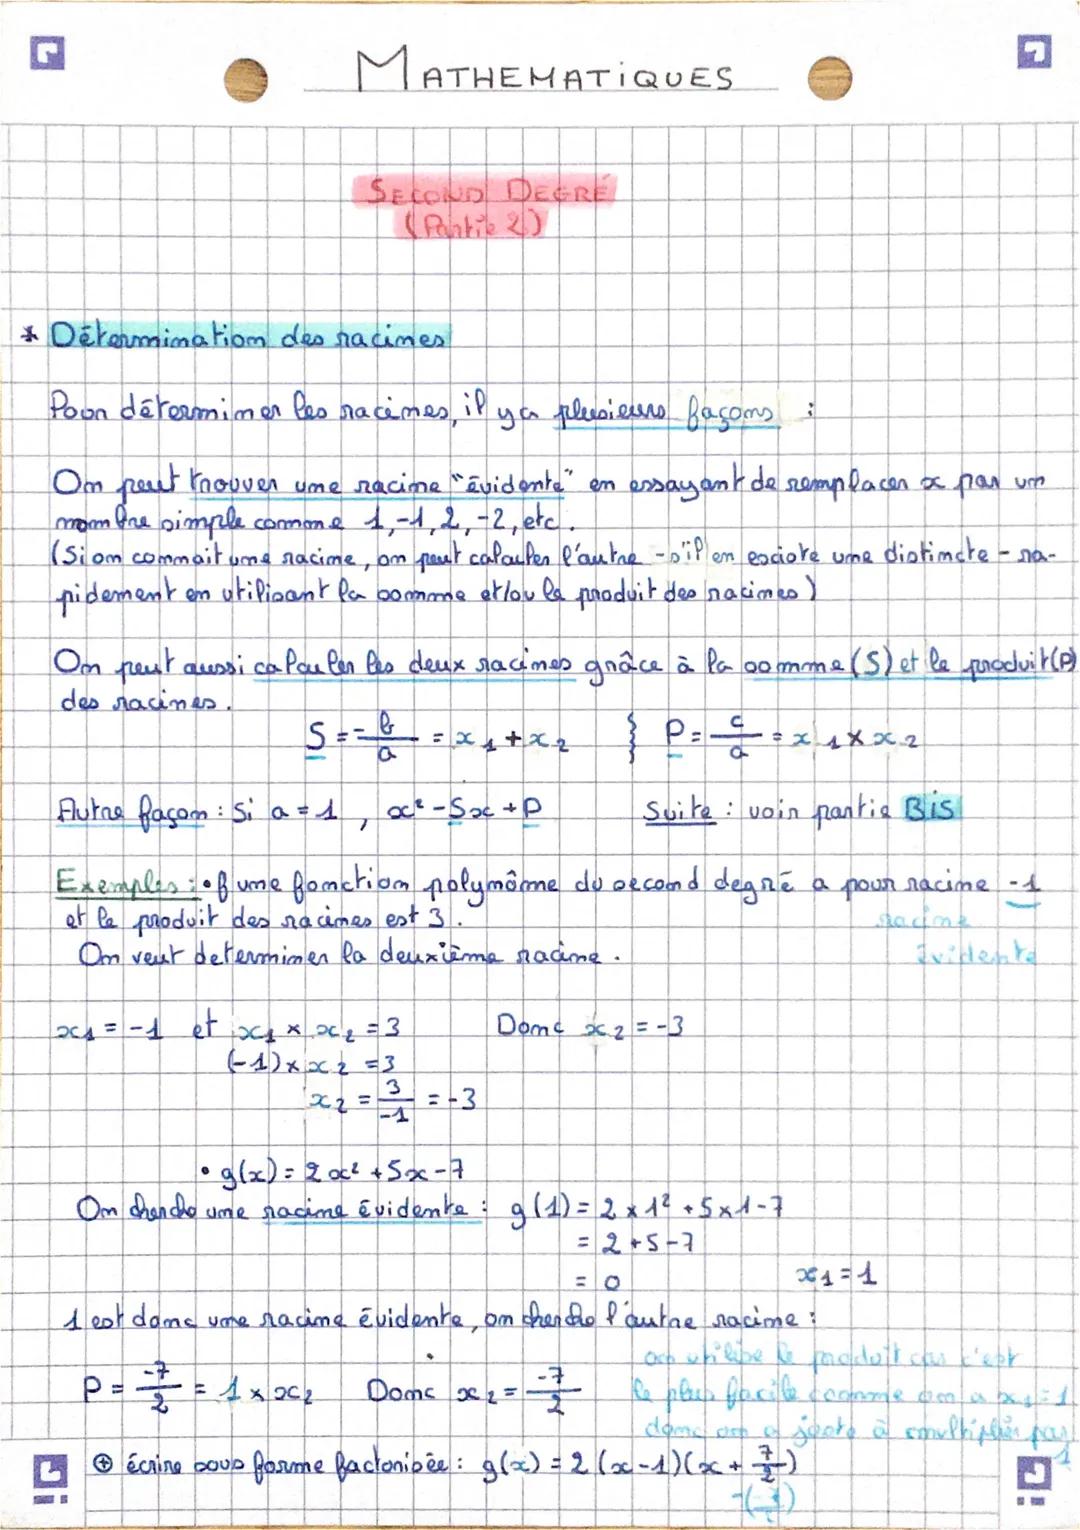 MATHEMATiQUES
SECOND DEGRÉ
(Partie 2)
* Détermination des racines
Pour déterminer les racines, il y a plusieurs façons :
On peut trouver une racine "évidente" en essayant de remplacer x par un
nombre simple comme 1,-1,2,-2,etc.
(Si on connait une racine, on peut calculer l'autre -s'il en existe une distincte - ra-
pidement en utilisant la somme et/ou le produit des racines)
On peut aussi calculer les deux racines grâce à la somme (S) et le produit (P)
des racines.
S = -b/a = x₁ + x₂ } P = c/a = x₁ × x₂
Autre façon : Si a = 1 , x² - Sx + P Suite : voir partie Bis
Exemples : • f une fonction polynôme du second degré a pour racine -1
et le produit des racines est 3.
racine
On veut determiner la deuxième racine.
évidente
x₁ = -1 et x₁ × x₂ = 3 Donc x₂ = -3
(-1) × x₂ = 3
x₂ = 3/-1 = -3
• g(x) = 2x² + 5x - 7
On cherche une racine évidente : g(1) = 2 × 1² + 5 × 1 - 7
= 2 + 5 - 7
= 0 x₁ = 1
1 est donc une racine évidente, on cherche l'autre racine :
on utilise le produit car c'est
P = -7/2 = 1 × x₂ Donc x₂ = -7/2
le plus facile comme on a x₁ = 1
donc on a juste à multiplier par
1
⊕ écrire sous forme factorisée : g(x) = 2(x-1)(x + 7/2)